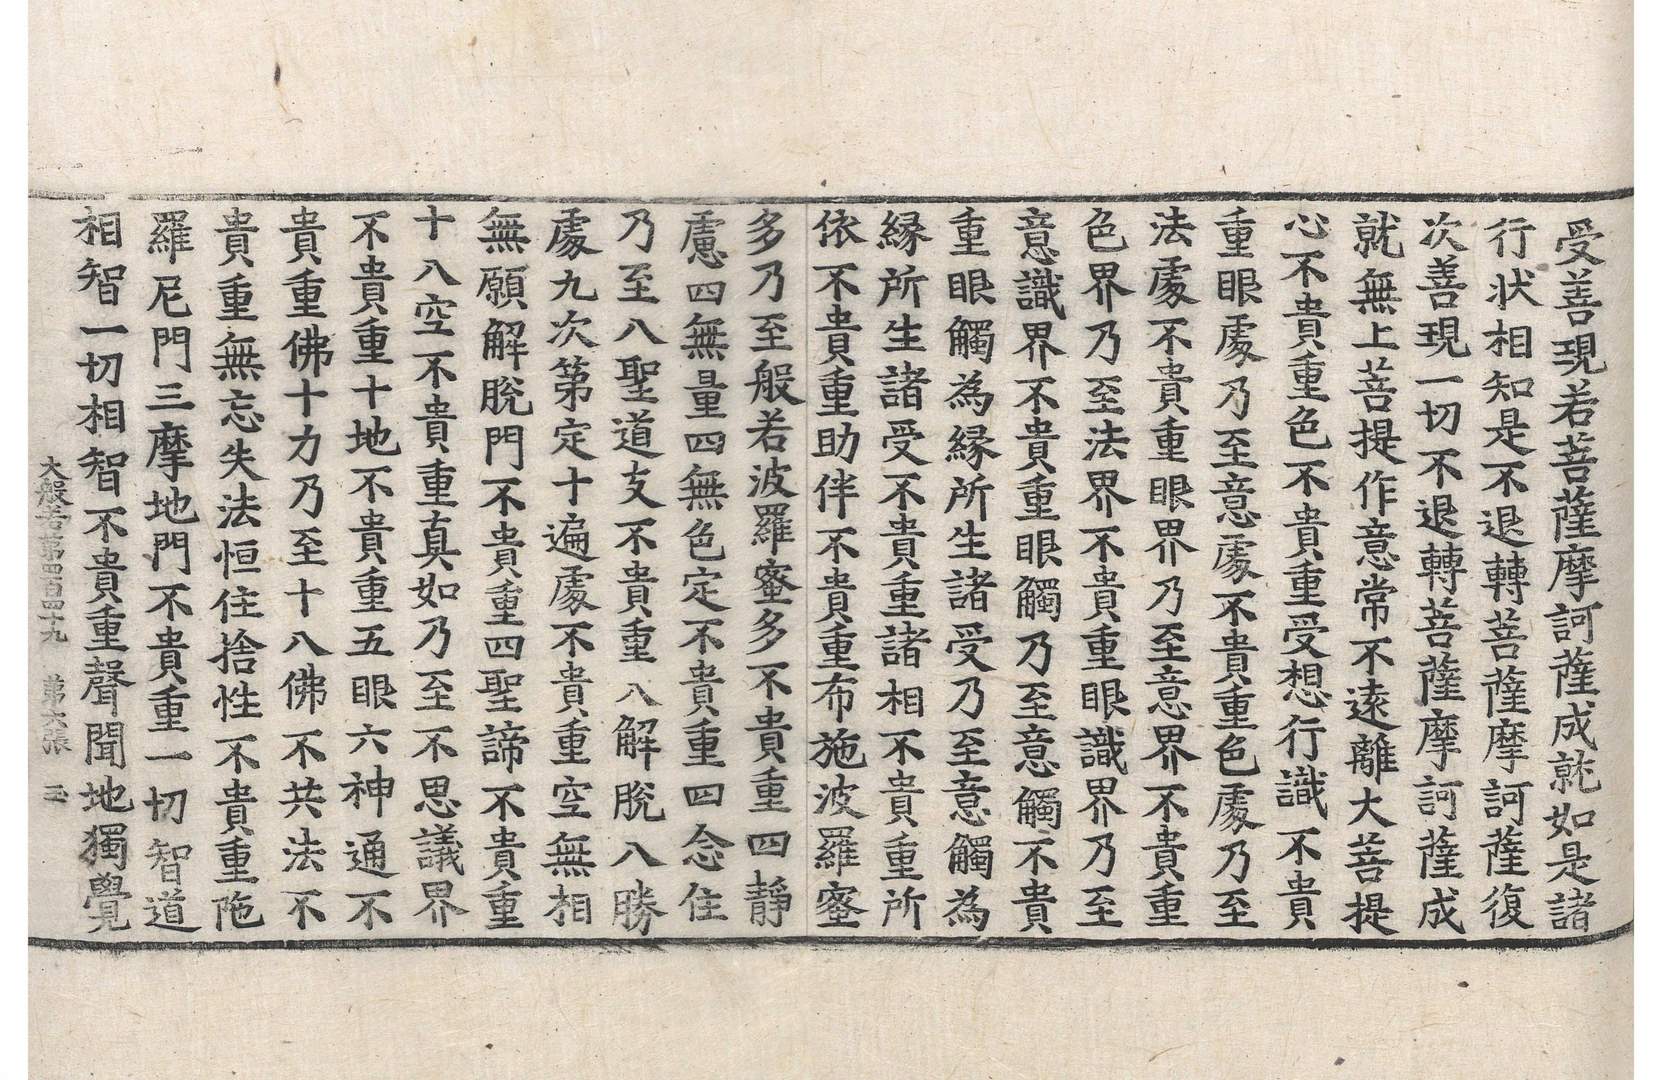 受善現若菩薩摩訶薩成就如是諸
行狀相知是不退轉菩薩摩訶薩復
次善現一切不退轉菩薩摩訶薩成
就無上菩提作意常不遠離大菩提
心不貴重色不貴重受想行識不貴
重眼處乃至意處不貴重色處乃至
法處不貴重眼界乃至意界不貴重
色界乃至法界不貴重眼識界乃至
意識界不貴重眼觸乃至意觸不貴
重眼觸為緣所生諸受乃至意觸為
緣所生諸受不貴重諸相不貴重所
依不貴重助伴不貴重布施波羅蜜
多乃至般若波羅蜜多不貴重四靜
慮四無量四無色定不貴重四念住
乃至八聖道支不貴重八解脫八勝
處九次第定十遍處不貴重空無相
無願解脫門不貴重四聖諦不貴重
十八空不貴重真如乃至不思議界
不貴重十地不貴重五眼六神通不
貴重佛十力乃至十八佛不共法不
貴重無忘失法恒住捨性不貴重陁
羅尼門三摩地門不貴重一切智道
相智一切相智不貴重聲聞地獨覺
大般若第四百四十九 第六張 玉